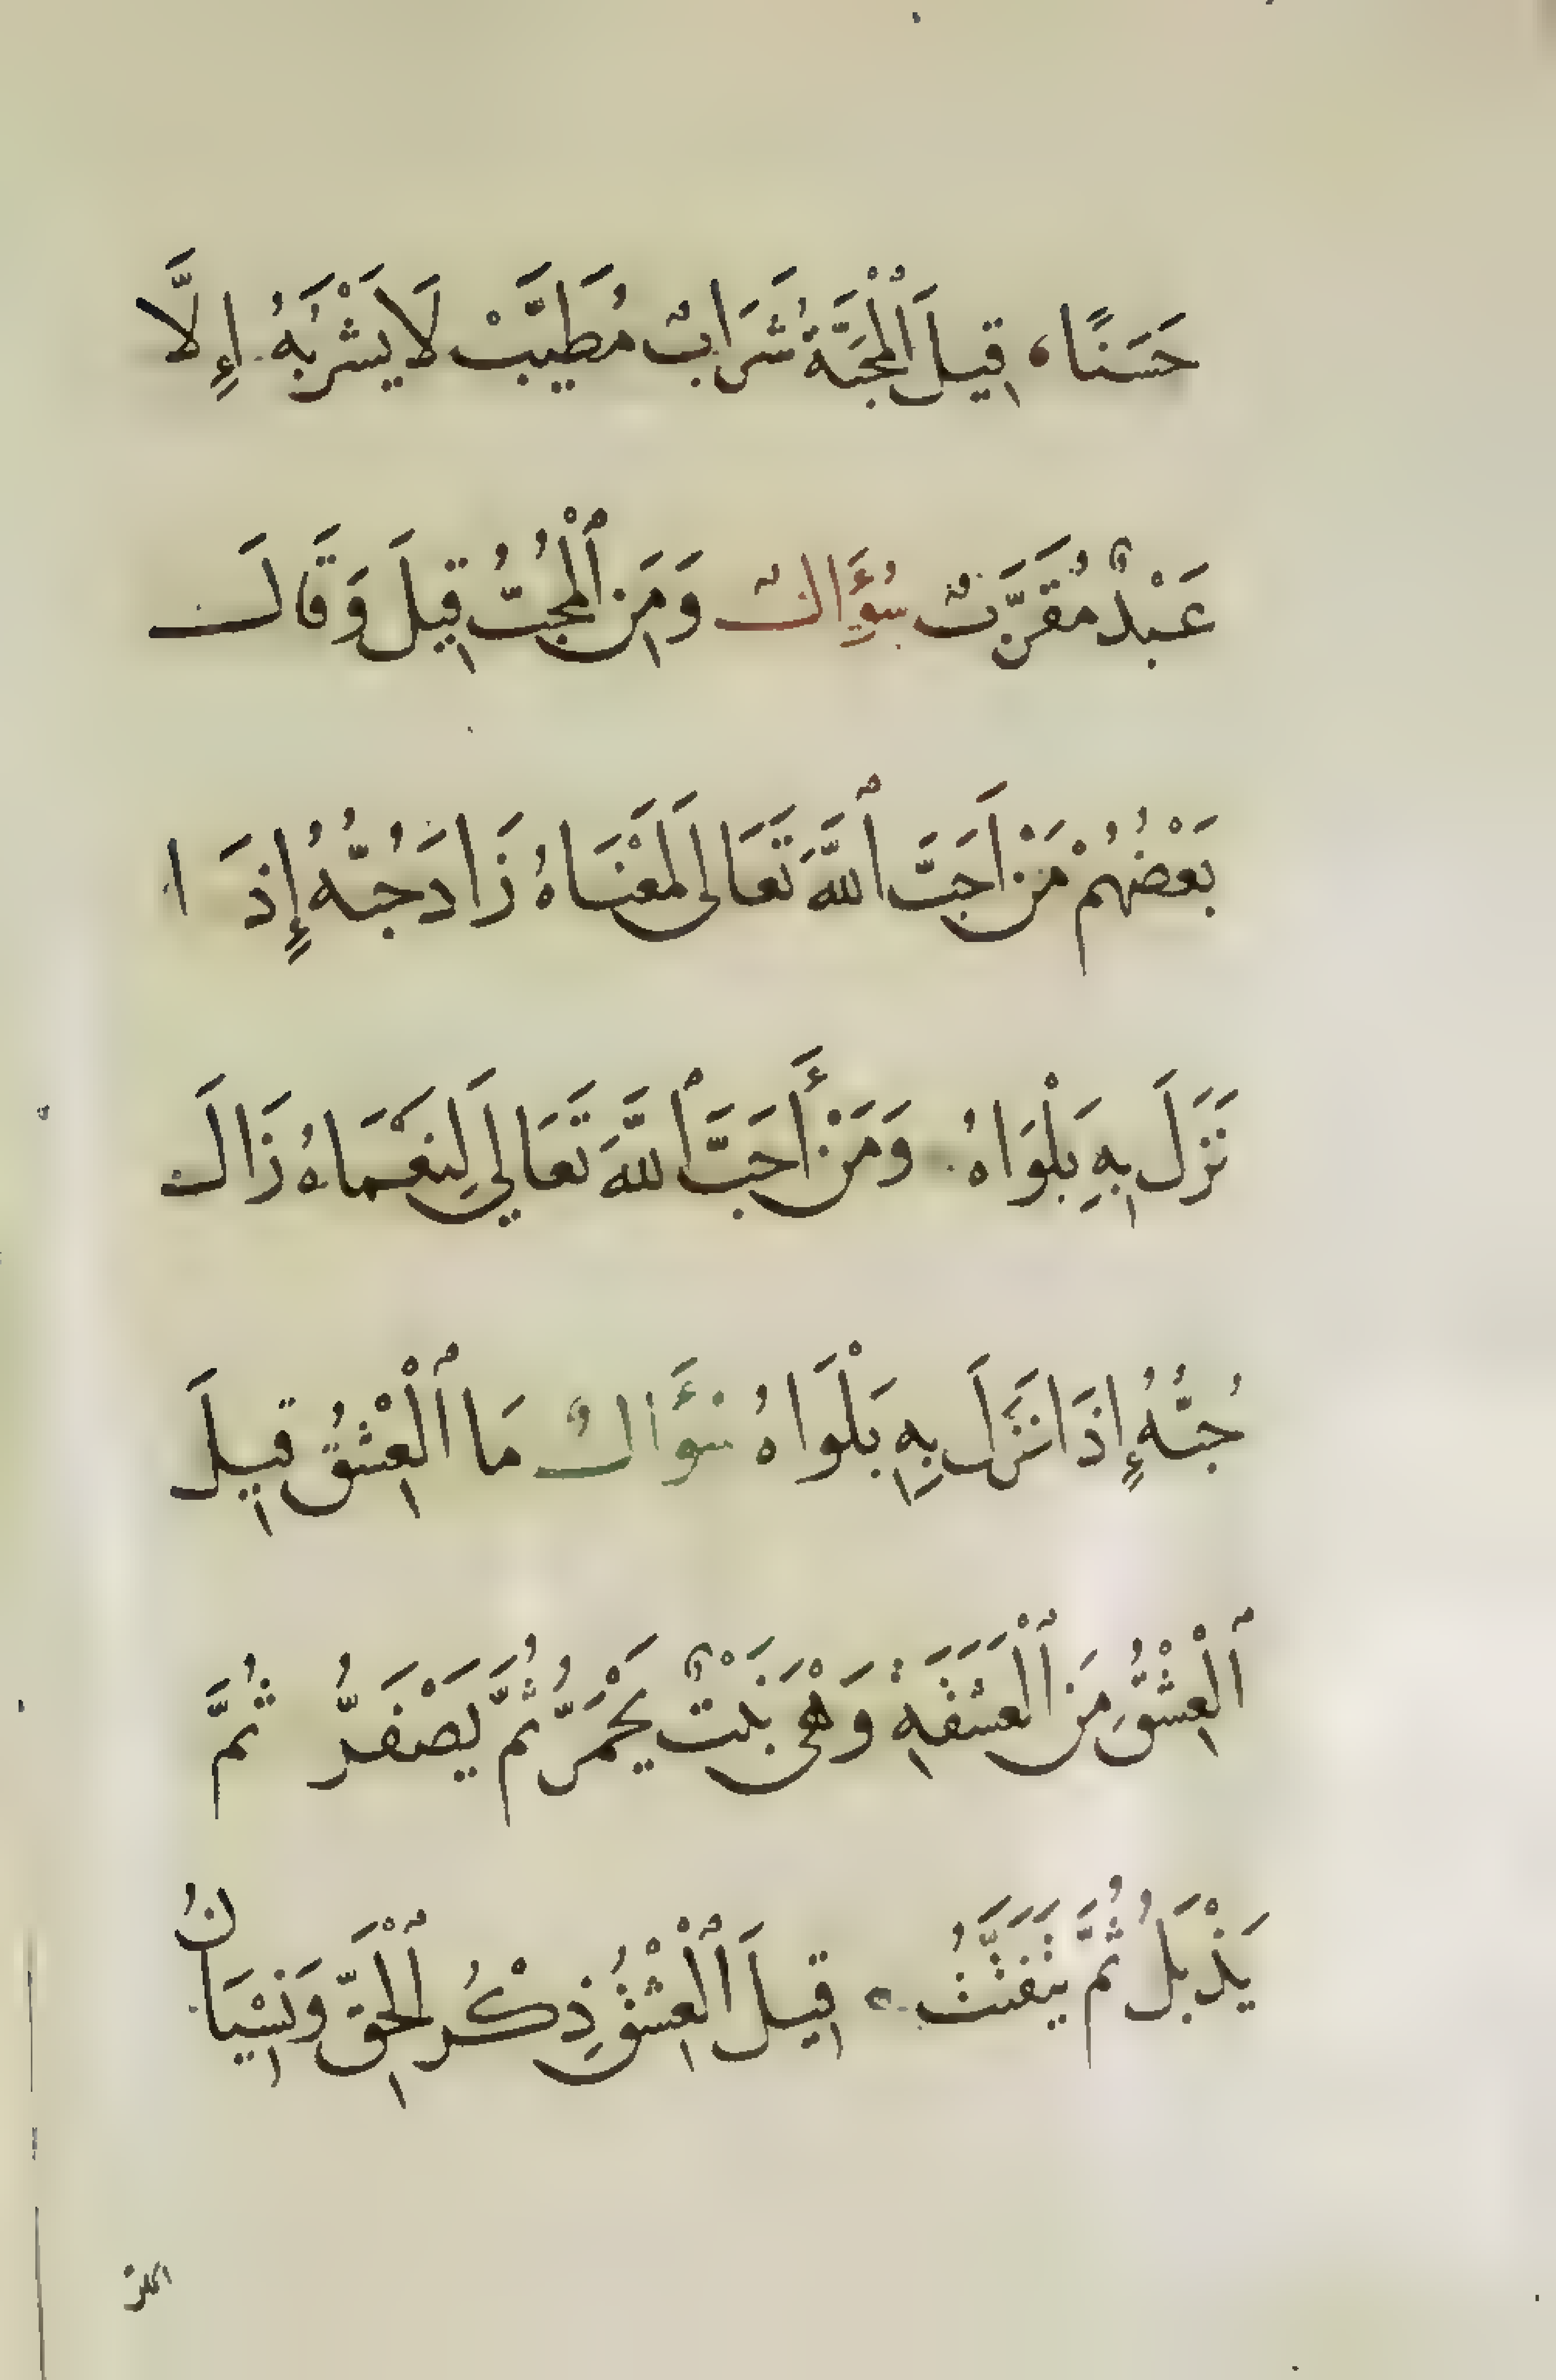 حَسَنًا، قِيلَ ٱلْمَحَبَّةُ شَرَابٌ مُطَيَّبٌ لَا يَشْرَبُهُ إِلَّا
عَبْدٌ مُقَرَّبٌ سُؤَالٌ وَمَنِ ٱلْمُحِبُّ قِيلَ وَقَالَ
بَعْضُهُمْ مَنْ اَحَبَّ ٱللَّهَ تَعَالَى لِمَعْنَاهُ زَادَ حُبُّهُ إِذَا
نَزَلَ بِهِ بَلْوَاهُ وَمَنْ أَحَبَّ ٱللَّهَ تَعَالَى لِنَعْمَاهُ زَالَ
حُبُّهُ إِذَا نَزَلَ بِهِ بَلْوَاهُ سُؤَالٌ مَا ٱلْعِشْقُ قِيلَ
ٱلْعِشْقُ مِنَ ٱلْعَشَقَةِ وَهْيَ نَبْتٌ يَحْمَرُّ ثُمَّ يَصْفَرُّ ثُمَّ
يَذْبَلُ ثُمَّ يَتَفَتَّتُ قِيلَ ٱلْعِشْقُ ذِكْرُ ٱلْحَقِّ وَنِسْيَانُ